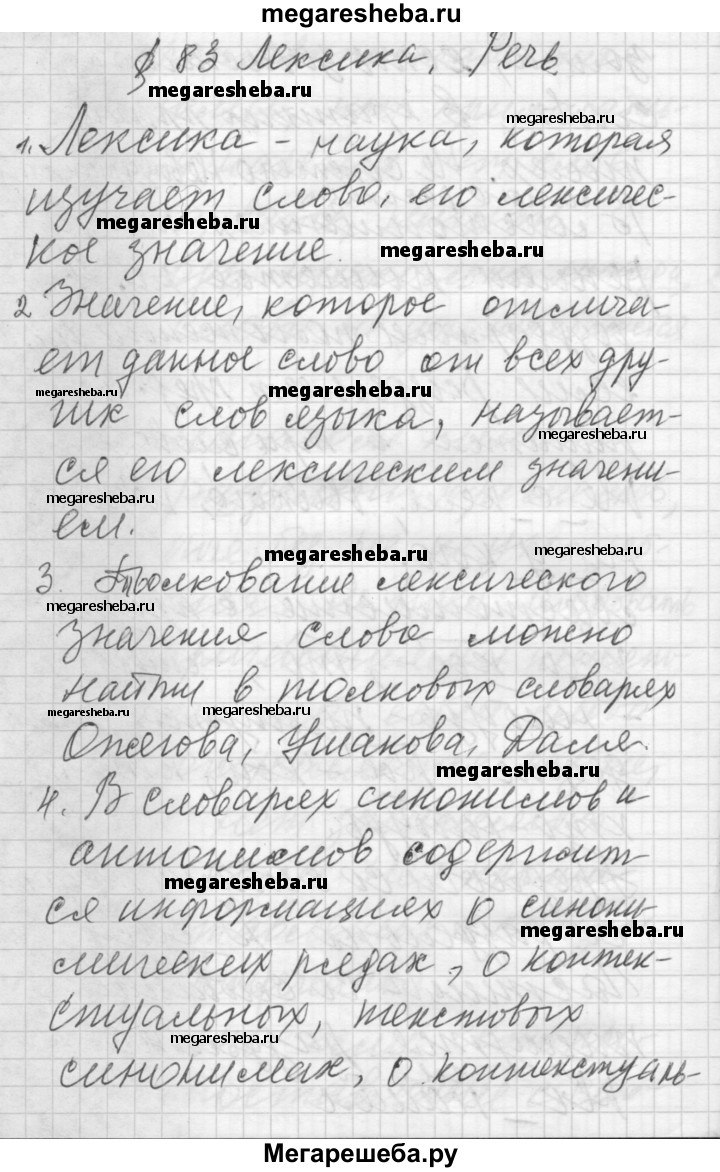 megaresheba.ru
§ 83 Лексика, Речь
megaresheba.ru
megaresheba.ru
1. Лексика - наука, которая
изучает слово, его лексичес-
megaresheba.ru
кое значение.
megaresheba.ru
2 Значение, которое отлича-
ет данное слово от всех дру-
megaresheba.ru
megaresheba.ru
гих слов языка, называет-
megaresheba.ru
ся его лексическим значени-
megaresheba.ru
ем.
megaresheba.ru
megaresheba.ru
3. Толкование лексического
megaresheba.ru
значения слова можно
найти в толковых словарях
megaresheba.ru
megaresheba.ru
Ожегова, Ушакова, Даля.
megaresheba.ru
4. В словарях синонимов и
антонимов содержит-
megaresheba.ru
ся информациях о синони
megaresheba.ru
мических рядах, о контек-
стуальных, текстовых
megaresheba.ru
синонимах, о контекстуаль-
Мегарешеба.ру